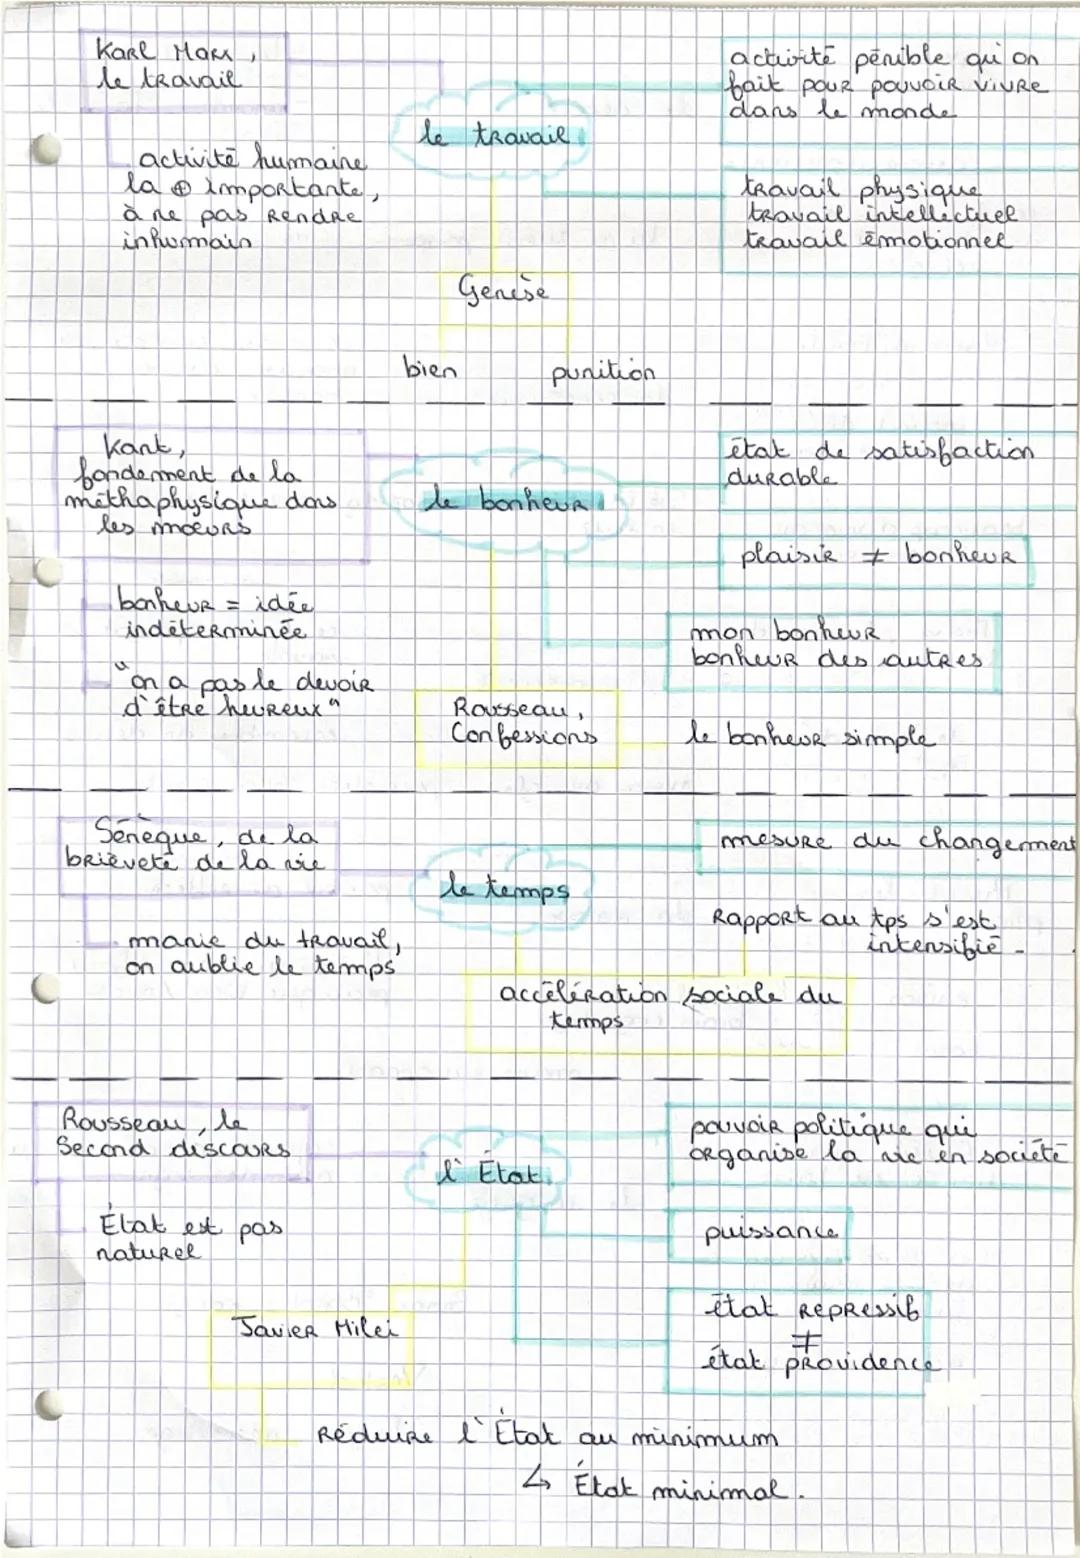 Karl Marx,
le travail
activité humaine
la ⊕ importante,
à ne pas rendre
inhumain
le travail
activité pénible qu'on
fait pour pouvoir vivre
dans le monde
travail physique
travail intellectuel
travail émotionnel
Genèse
bien
punition
Kant,
fondement de la
méthaphysique dans
les moeurs
bonheur = idée
indéterminée
"on a pas le devoir
d'être heureux"
le bonheur
état de satisfaction
durable
plaisir ≠ bonheur
mon bonheur
bonheur des autres
Rousseau,
Confessions
le bonheur simple
Sénèque, de la
brièveté de la vie
manie du travail,
on oublie le temps
le temps
mesure du changement
Rapport au tps s'est
intensifié.
accélération sociale du
temps
Rousseau, le
Second discours
État est pas
naturel
l'État
pouvoir politique qui
organise la vie en société
puissance
état répressif
≠
état providence
Javier Milei
Réduire l'État au minimum
↳ État minimal.